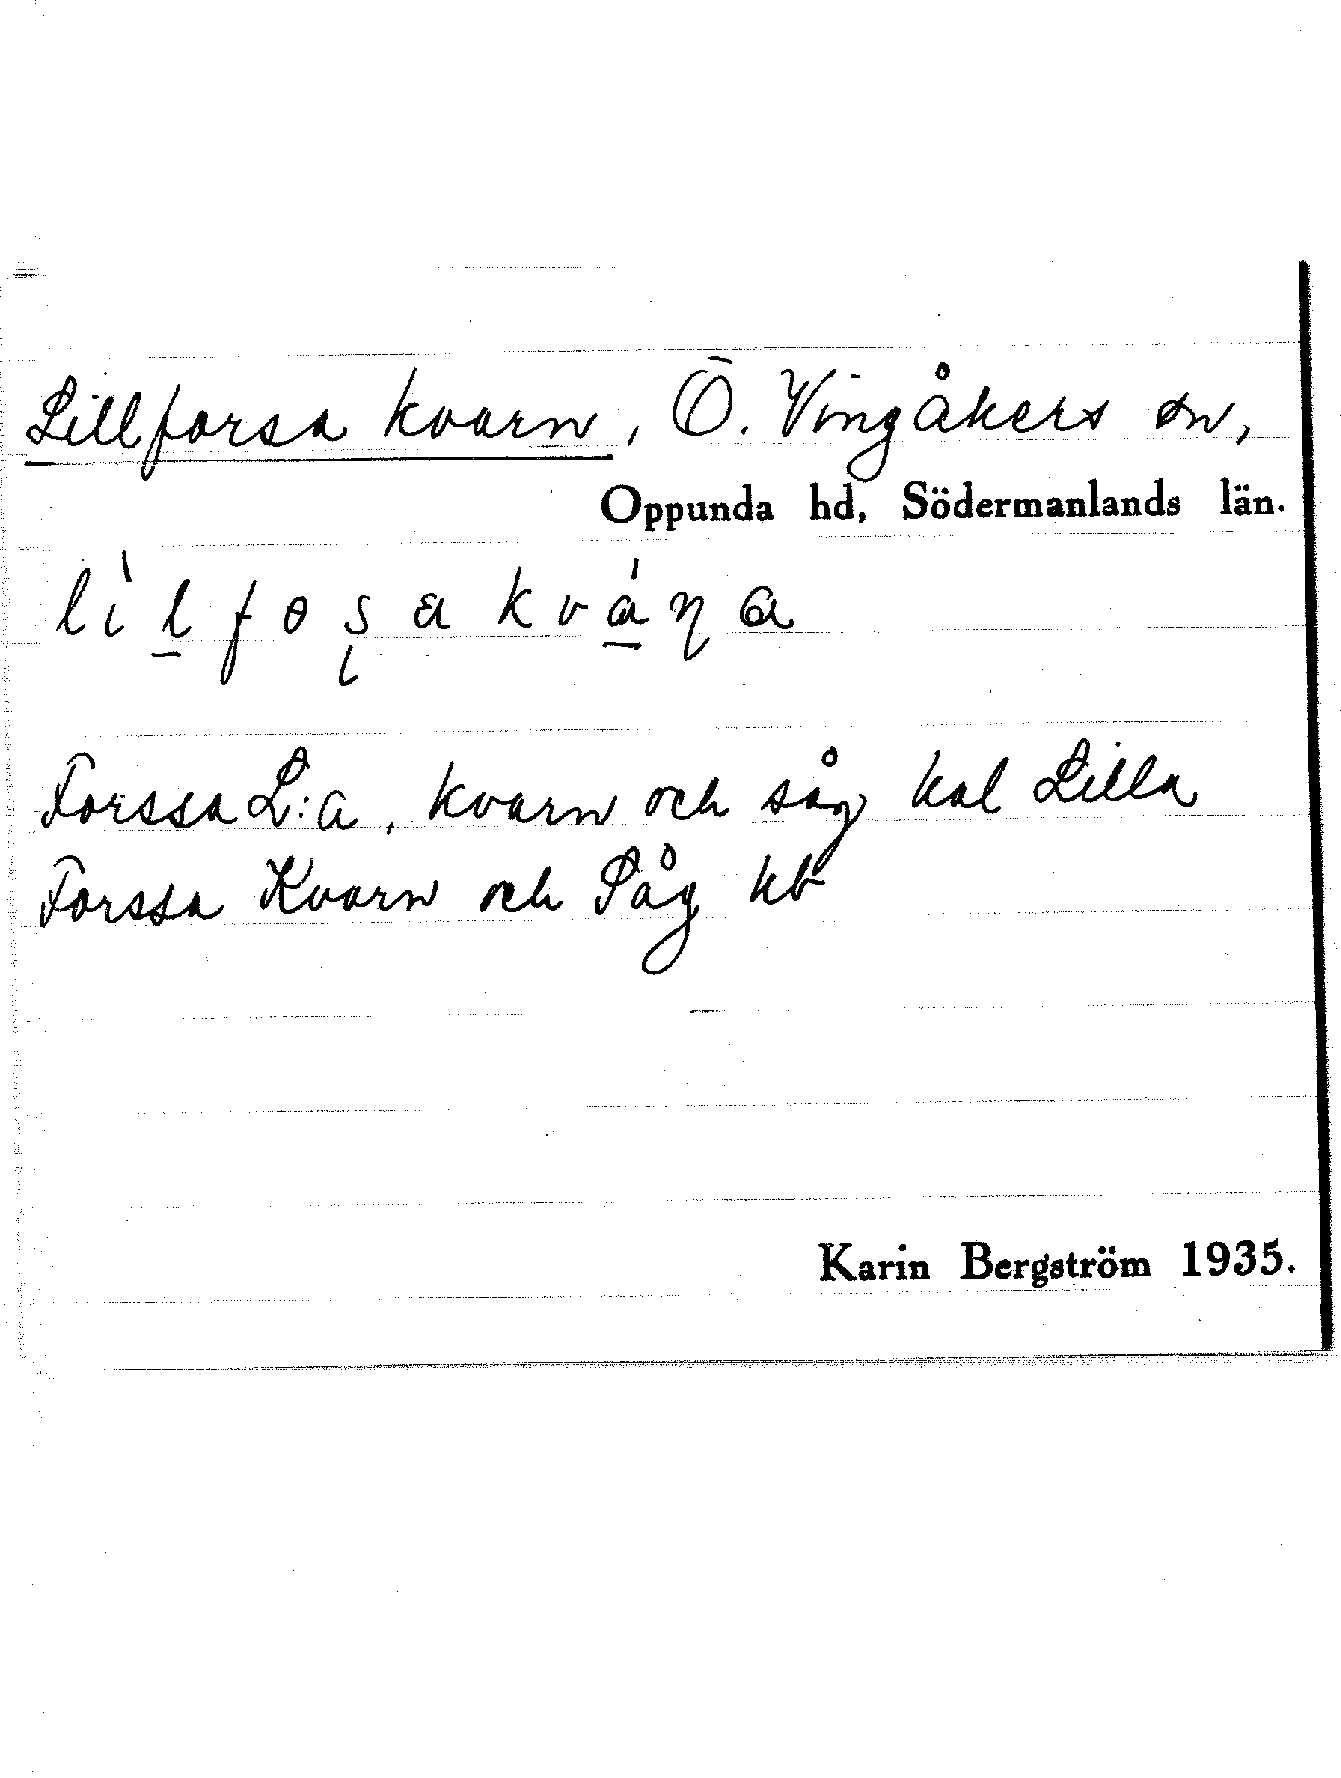 Lillforsa kvarn, Ö. Vingåkers sn,
Oppunda hd, Södermanlands län.
lìl̠foʂa kvá̠ɳɑ
Forssa L:a, kvarn och såg kal Lilla
Forssa Kvarn och Såg kb
Karin Bergström 1935.